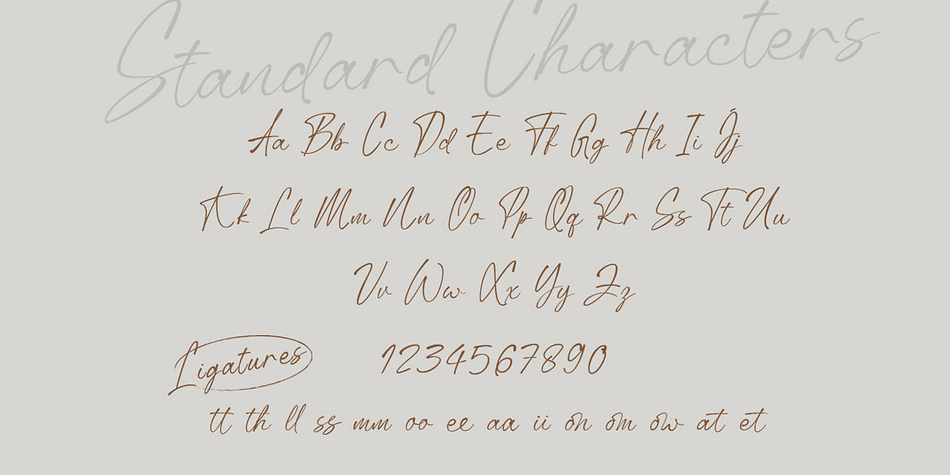 Standard Characters
Aa Bb Cc Dd Ee Ff Gg Hh Ii Jj
Kk Ll Mm Nn Oo Pp Qq Rr Ss Tt Uu
Vv Ww Xx Yy Zz
Ligatures
1234567890
tt th ll ss mm oo ee aa ii on om ow at et